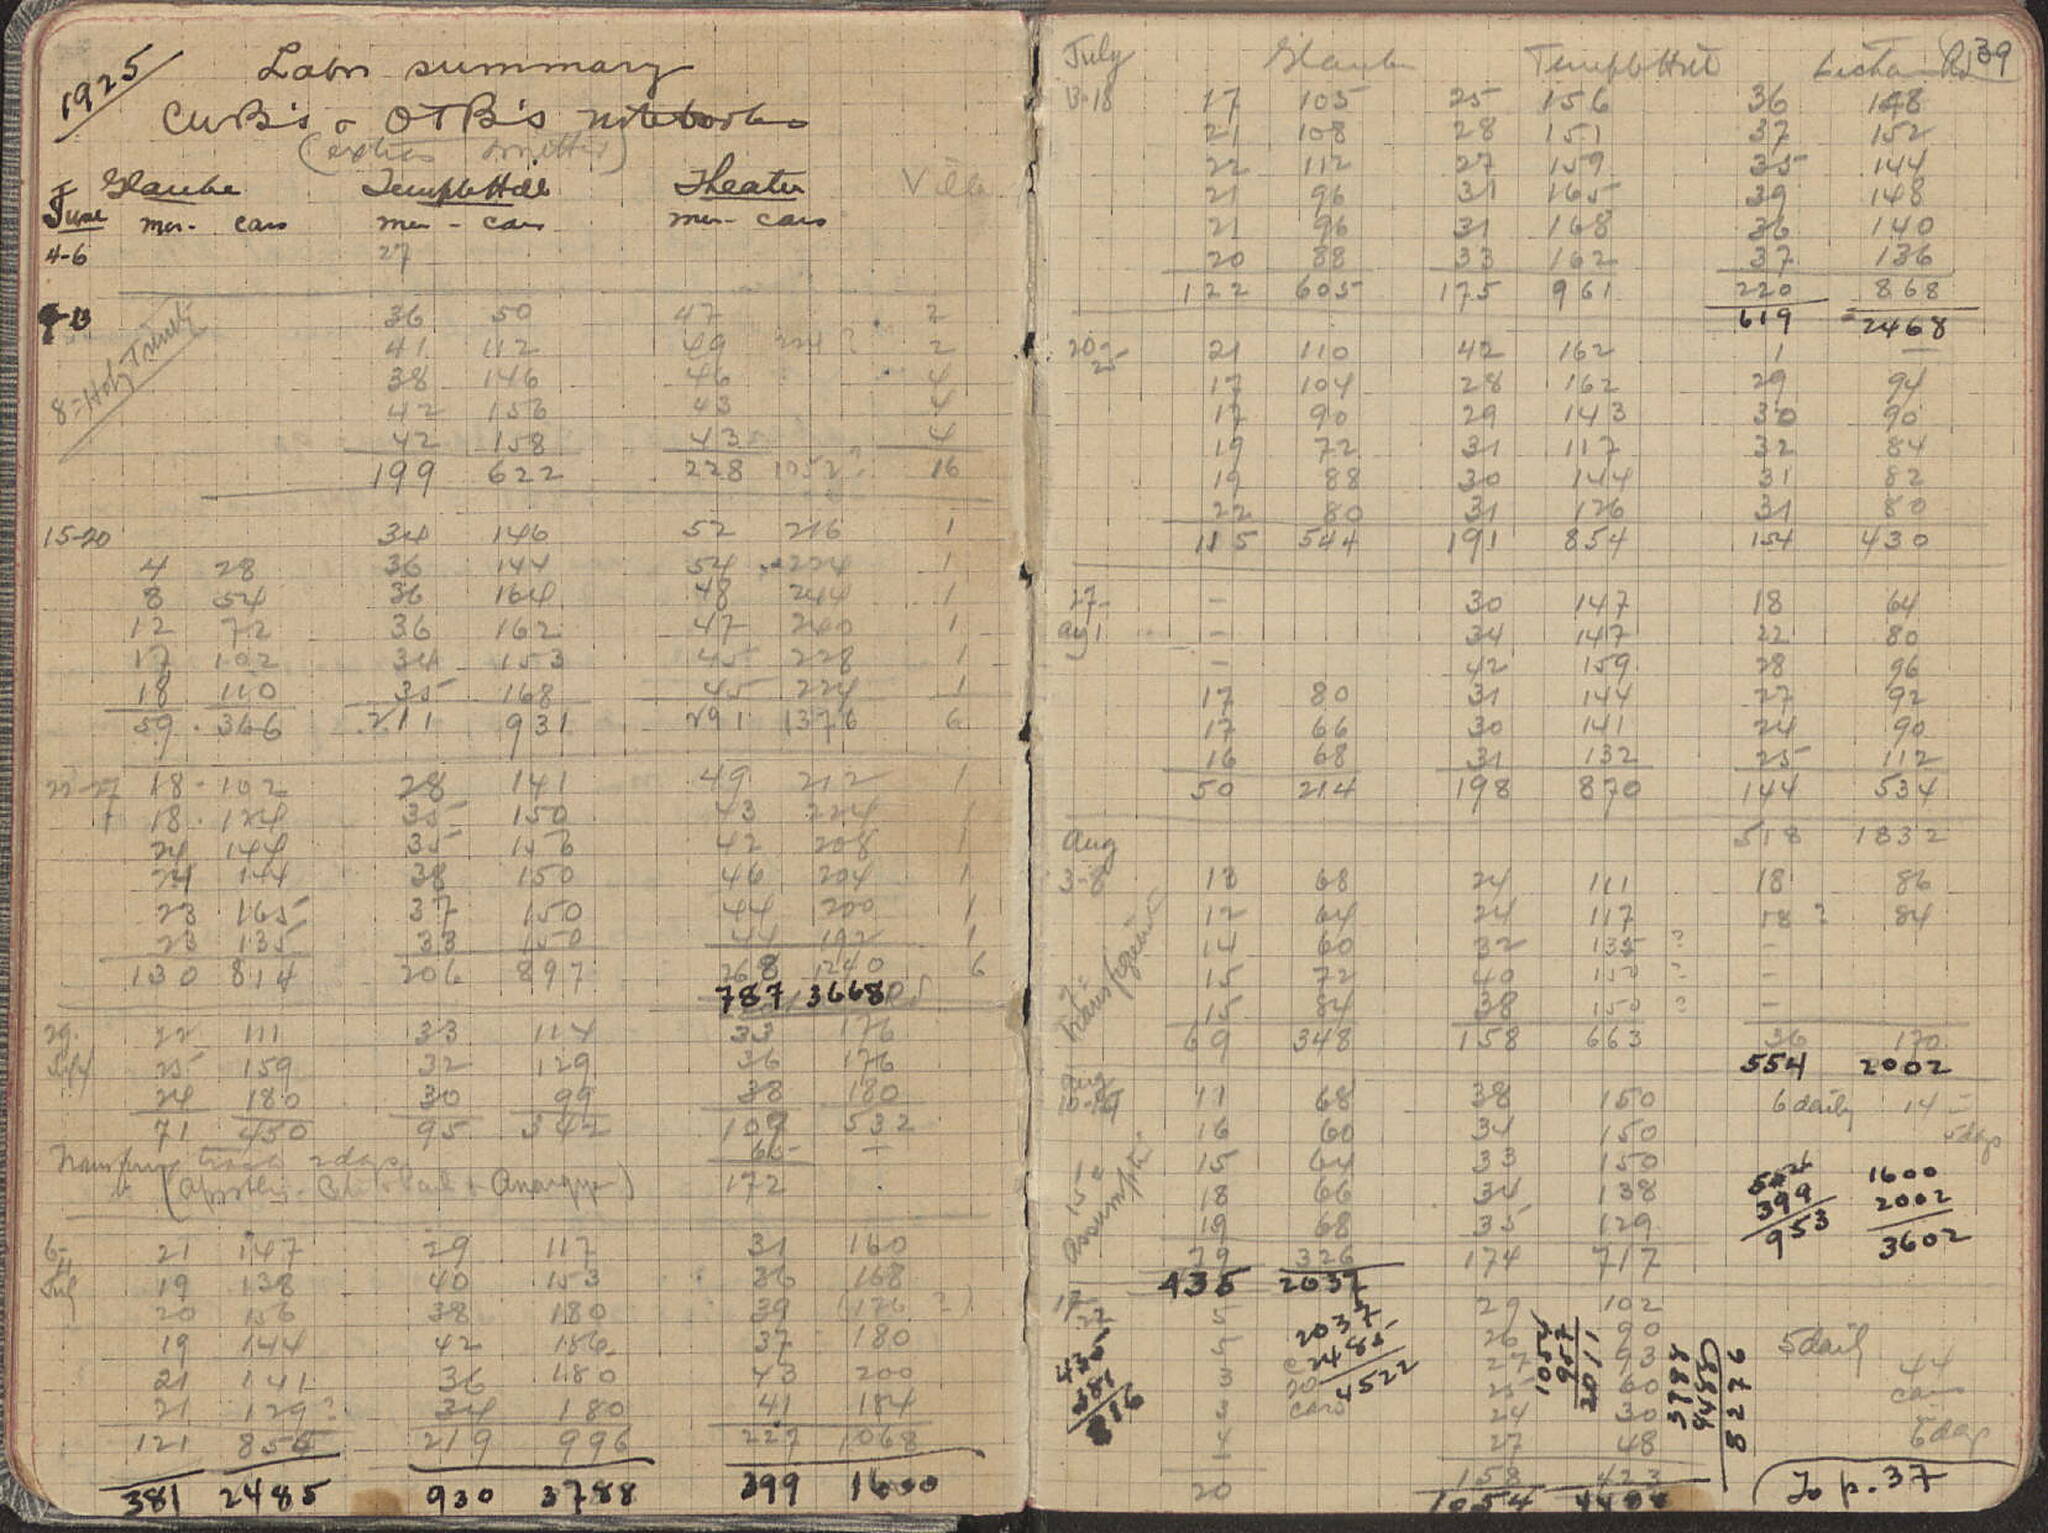 1925
Labor summary
CWB's & OTB's notebooks
(extras omitted)
Glaube Temple Hill Theater Villa
June men - cars men - cars men - cars
4-6 27
8-13 36 50 47 2
41 112 49 224? 2
8=Holy Trinity 38 146 46 4
42 156 43 4
42 158 43 4
199 622 228 1052? 16
15-20 34 146 52 216 1
4 28 36 144 54 224 1
8 54 36 164 48 244 1
12 72 36 162 47 240 1
17 102 34 153 45 228 1
18 110 35 168 45 224 1
59 366 211 931 291 1376 6
22-27 18 102 28 141 49 212 1
18 124 35 150 43 224 1
24 144 35 156 42 208 1
24 144 38 150 46 204 1
23 165 37 150 44 200 1
23 135 33 150 44 192 1
130 814 206 897 268 1240 6
787 3668
29- 22 111 33 114 33 176
July 4 25 159 32 129 36 176
24 180 30 99 38 180
71 450 95 342 107 532
Transferring track 2 days 65 —
(Apostles - &
172
6-11 21 147 29 117 31 160
July 19 138 40 153 36 168
20 156 38 180 39 (176 ?)
19 144 42 186 37 180
21 141 36 180 43 200
21 129? 34 180 41 184
121 855 219 996 227 1068
381 2485 930 3788 399 1600
39
July Glaube Temple Hill Lechaion Rd
13-18 17 105 25 156 36 148
21 108 28 151 37 152
22 112 27 159 35 144
21 96 31 165 39 148
21 96 31 168 36 140
20 88 33 162 37 136
122 605 175 961 220 868
619 2468
20-25 21 110 42 162 1 —
17 104 28 162 29 94
17 90 29 143 30 90
19 72 31 117 32 84
19 88 30 144 31 82
22 80 31 126 31 80
115 544 191 854 154 430
27- — 30 147 18 64
Ag 1 — 34 147 22 80
— 42 159 28 96
17 80 31 144 27 92
17 66 30 141 24 90
16 68 31 132 25 112
50 214 198 870 144 534
518 1832
Aug
3-8 13 68 24 111 18 86
12 64 24 117 18? 84
14 60 32 135 ? —
15 72 40 150 ? —
15 84 38 150 ? —
Transfiguration
69 348 158 663 36 170
554 2002
Aug
10-15 11 68 38 150 6 daily 14 —
16 60 34 150 5 days
15 64 33 150
18 66 34 138
19 68 35 129
15 = Assumption
79 326 174 717
554 1600
399 2002
953 3602
435 2037
17-22 5 29 102
5 26 90 5 daily
3 27 93 44
3 20 25 60 cars
3 cars 24 30
1 27 48 6 days
20 158 423
1054 4488
2037
2485
4522
435
381
816
1054
957
2011
3788
4488
8276
To p. 37